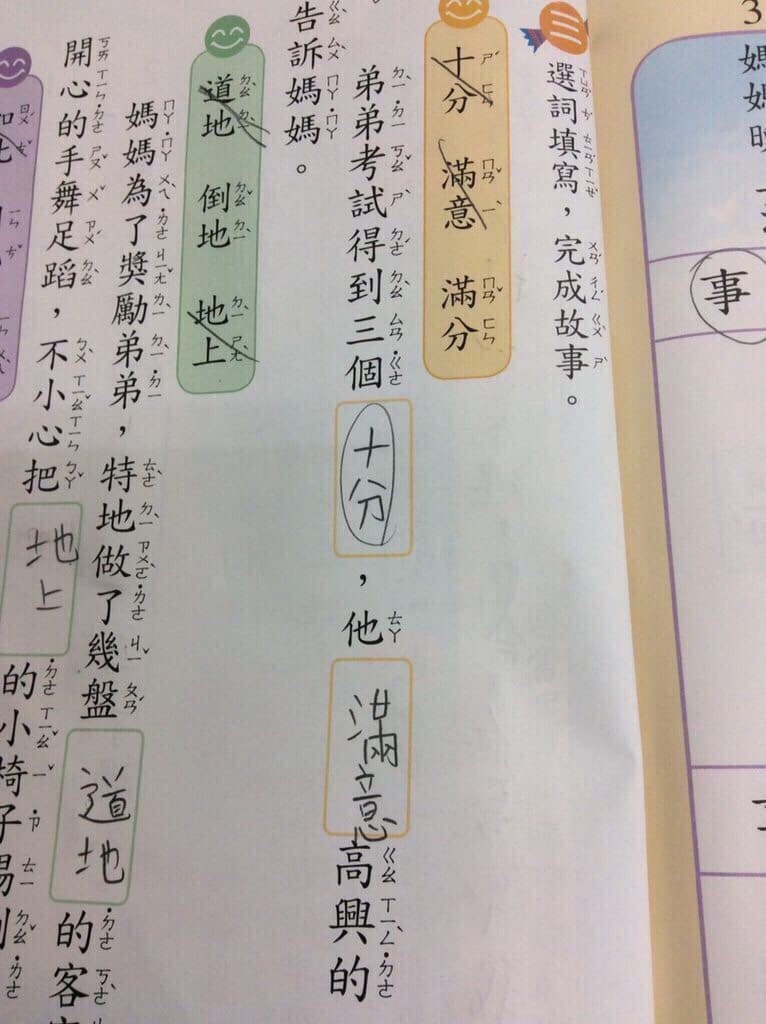 3
媽媽
事
三
選詞填寫，完成故事。
十分 滿意 滿分
弟弟考試得到三個十分，他滿意高興的
告訴媽媽。
道地 倒地 地上
媽媽為了獎勵弟弟，特地做了幾盤道地的客
開心的手舞足蹈，不小心把地上的小椅子踢